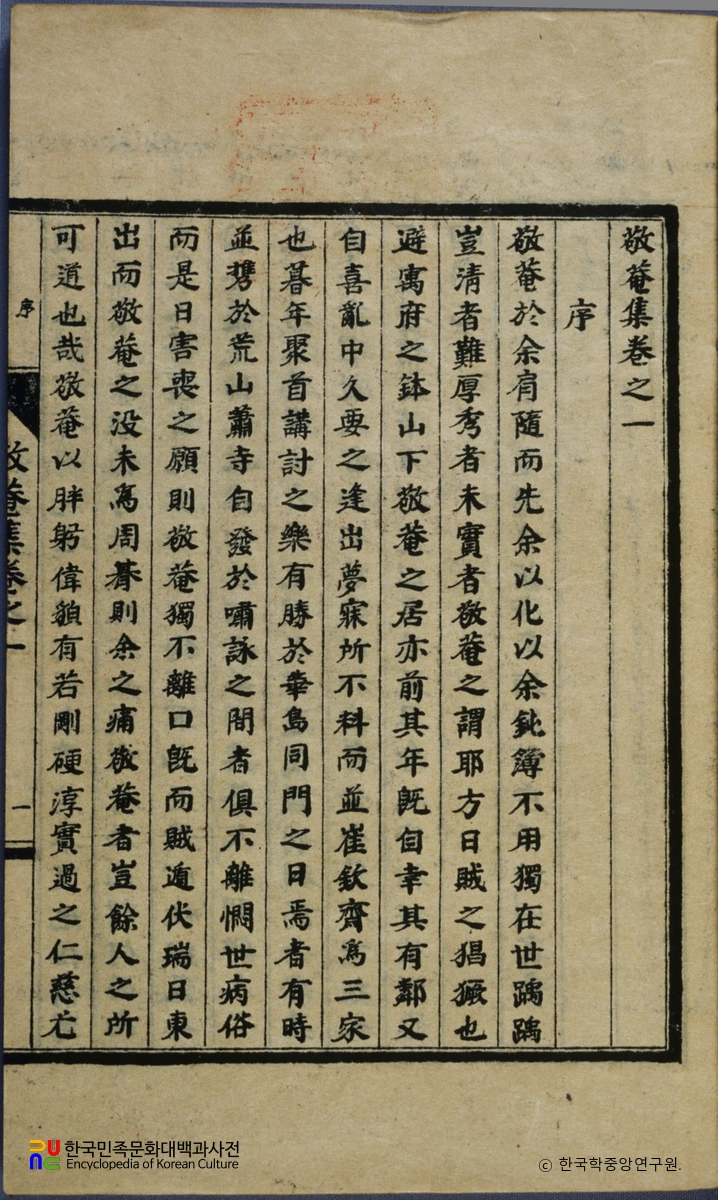 敬菴集卷之一
序
敬菴於余肩隨而先余以化以余鈍簿不用獨在世踽踽
豈清者難厚秀者未實者敬菴之謂耶方日賊之猖獗也
避寓府之鉢山下敬菴之居亦前其年旣自幸其有鄰又
自喜亂中久要之逢出夢寐所不料而並崔欽齋爲三家
也暮年聚首講討之樂有勝於華島同門之日焉者有時
並携於荒山蕭寺自發於嘯詠之間者俱不離憫世病俗
而是日害喪之願則敬菴獨不離口旣而賊遁伏瑞日東
出而敬菴之沒未爲周朞則余之痛敬菴者豈餘人之所
可道也哉敬菴以胖躬偉貌有若剛硬淳實過之仁慈尤
序
敬菴集卷之一
一
한국민족문화대백과사전
Encyclopedia of Korean Culture
© 한국학중앙연구원.